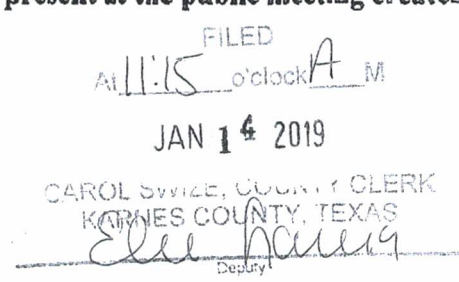 present at the public meeting creates
FILED
At 11:15 o'clock A M
JAN 14 2019
CAROL SWIZE, COUNTY CLERK
KARNES COUNTY, TEXAS
Deputy